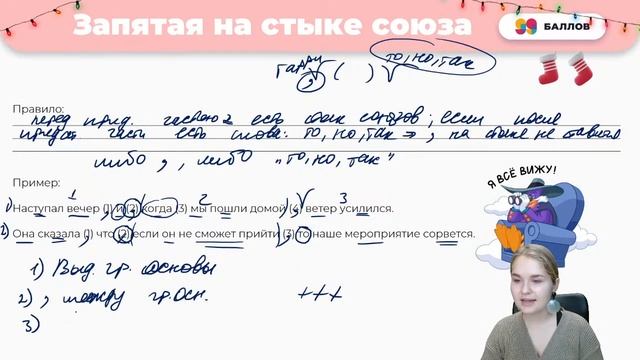 Запятая на стыке союза
99 БАЛЛОВ
Гарри ( ) то, но, так
Правило:
перед прид. частью есть стык союзов; если после
придат части есть слова: то, но, так ⇒ , на стыке не ставится
либо , , либо "то, но, так"
Пример:
Я ВСЁ ВИЖУ!
1) 1 2 3
Наступал вечер (1) и (2) когда (3) мы пошли домой (4) ветер усилился.
2) Она сказала (1) что (2) если он не сможет прийти (3) то наше мероприятие сорвется.
1) Выд. гр. основы
2) , между гр. осн. +++
3)